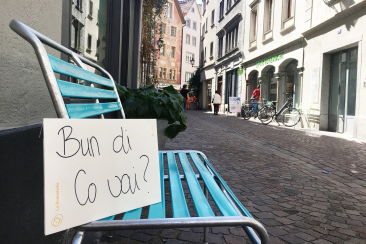 Bun di
Co vai?